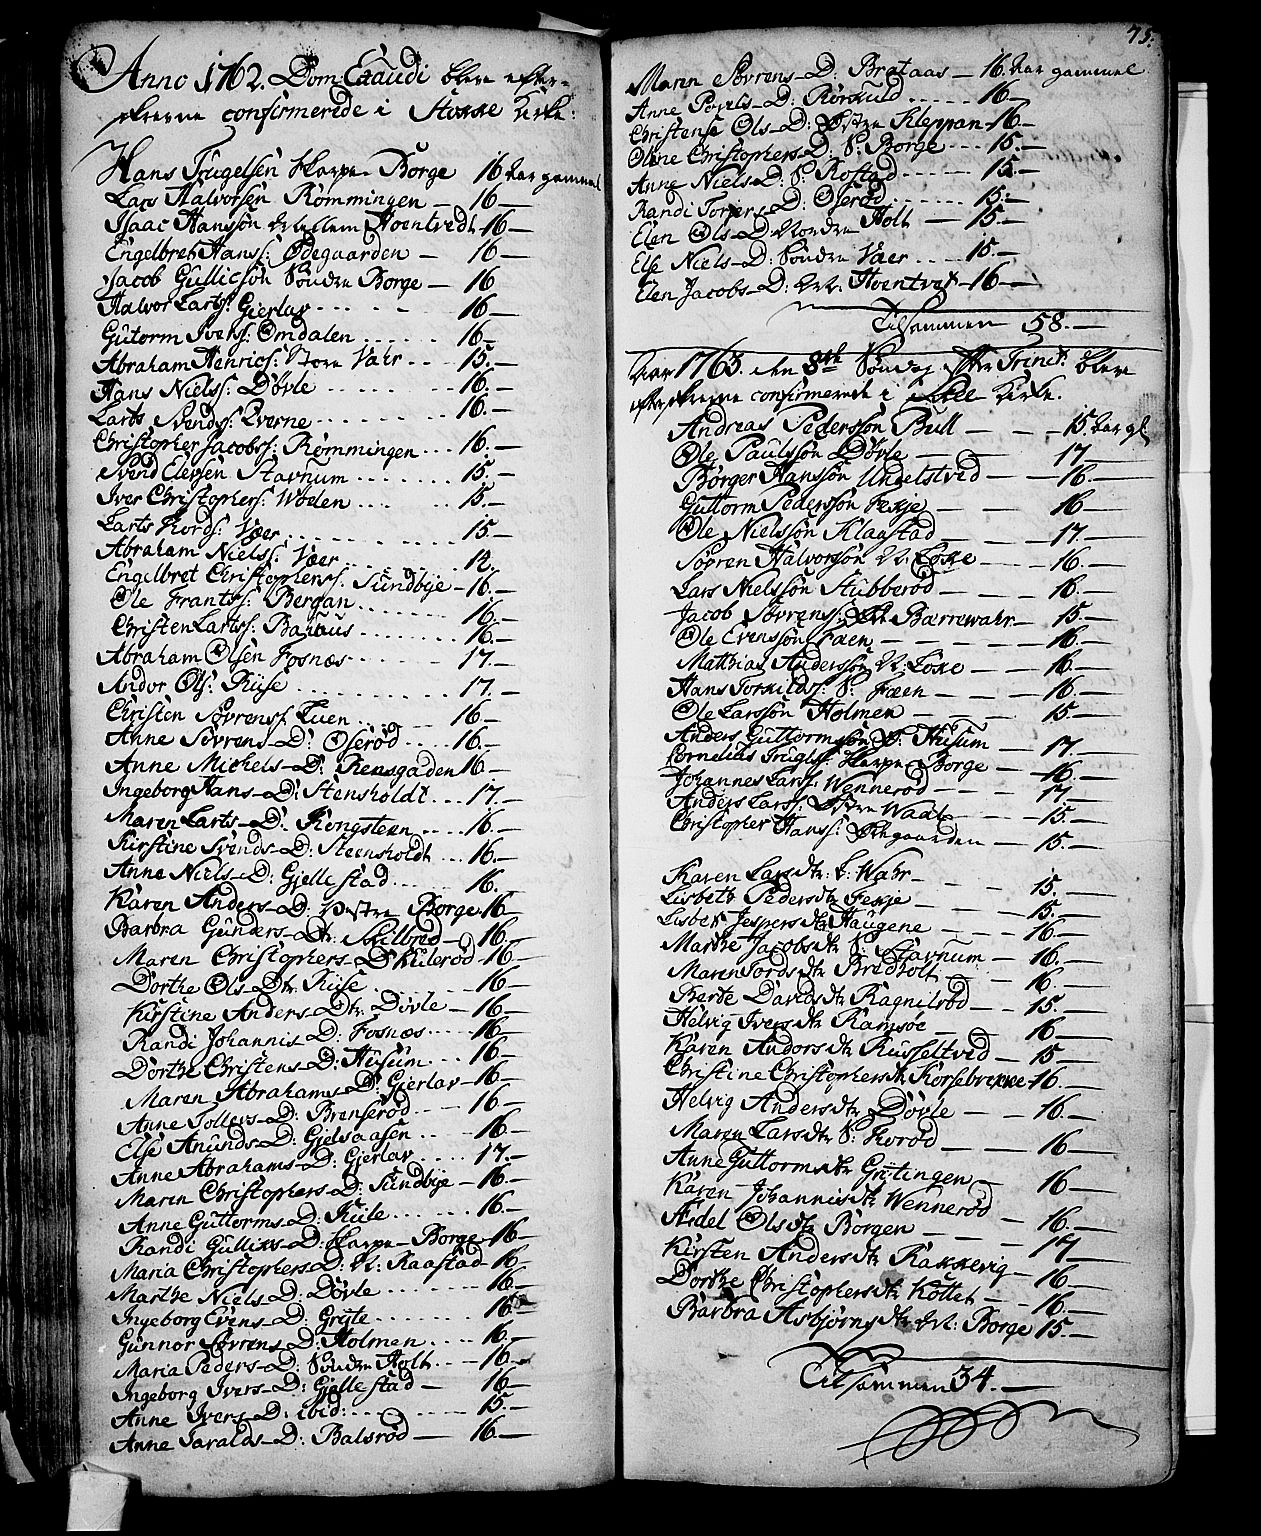 Anno 1762. Dom Exaudi bleve efter-
skrevne confirmerede i Stokke Kirke:
Hans Trugelsen Skarpe-Borge 16 Aar gammel
Lars Halvorsen Rømmingen — 16 —
Isaac Hansøn Mellem Hoentvedt 16 —
Engelbret Hanss: Ødegaarden — 16 —
Jacob Gullicsøn Søndre Borge — 16
Halvor Larts: Gierlav 16 —
Gutorm Ivers: Omdalen 16 —
Abraham Henrics: Store Vahr 15. —
Hans Niels: Døvle 16. —
Larts Svends: Qverne 16. —
Christopher Jacobs: Rømmingen 16. —
Svend Elevsen Stavnum 15. —
Iver Christophers: Woden 15. —
Larts Tords: Væer 15. —
Abraham Niels: Væer 12. —
Engelbret Christophers: Sundbye — 16. —
Ole Frants: Bergan 16. —
Christen Larts: Baasus 16. —
Abraham Olsen Fosnæs 17. —
Andor Ols: Riise 17. —
Christen Søvrens: Tuen 16 —
Anne Søvrens-D: Oserød 16. —
Anne Michels-D: Rensgaden 16 —
Ingeborg Hans-D: Stensholdt 17. —
Maren Larts-D: Kongsteen 16. —
Kirstine Svends-D: Steensholdt 16. —
Anne Niels-D: Gjellestad 16. —
Karen Anders-D: Vestre Borge 16 —
Barbra Gunders-Dtr: Skilbred — 16. —
Maren Christophers-D: Hulerød — 16 —
Dorthe Ols-Dtr: Riise 16 —
Kirstine Anders-Dtr: Døvle — 16 —
Randi Johannis-D: Fosnæs 16 —
Dorthe Christens-D: Husum 16 —
Maren Abrahams-D: Gierlav — 16 —
Anne Tollevs-D: Brenserød 16 —
Else Amunds-D: Gjelsaasen 16 —
Anne Abrahams-D: Gierlav 17. —
Maren Christophers-D: Sundbye — 16 —
Anne Guttorms-D: Kile 16. —
Randi Gulliks-D: Skarpe-Borge 16 —
Maria Christophers-D: N: Raastad — 16.
Marthe Niels-D: Døvle 16 —
Ingeborg Evens-D: Gryte 16 —
Gunnor Søvrens-D: Holmen 16. —
Maria Peders-D: Søndre Holt 16 —
Ingeborg Ivers-D: Gjellestad — 16 —
Anne Ivers-D: ibid: 15 —
Anne Jaralds-D: Balsrød — 16. —
75.
Maren Søvrens-D: Brataas — 16. Aar gammel
Anne Povels-D: Rørkuld 16 —
Christense Ols-D: Østre Kleppan — 16 —
Oline Christophers-D: S: Borge 15. —
Anne Niels-D: S: Rostad 15. —
Randi Torgers-D: Oserød 15. —
Elen Ols-D: Nordre Holt — 15 —
Else Niels-D: Søndre Væer 15. —
Elen Jacobs-D: Hoentvet — 16 —
Tilsammen 58. —
Aar 1763. den 8de Søndag efter Trinit: bleve
efterskrevne confirmerede i Skee Kirke.
Andreas Pedersøn Bull — 15. Aar gl
Ole Paulssøn Døvle — 17 —
Børger Hanssøn Undelstved — 16. —
Guttorm Pederssøn Fevje — 16 —
Ole Nielssøn Klaastad — 17. —
Søvren Halvorsøn N: Loxe — 16. —
Lars Nielssøn Stubberød — 16. —
Jacob Søvrens: Bærrewahr — 15 —
Ole Evenssøn Faen — 16. —
Matthias Anderssøn N: Loxe — 16 —
Hans Torkilds: S: Fæen — 16. —
Ole Larssøn Holmen — 15 —
Anders Guttormssøn S: Husum — 17. —
Cornelius Trugls: Skarpe Borge — 16. —
Johannes Lars: Wennerød — 17. —
Anders Lars: Østre Waale — 15. —
Christopher Hans: Ødegaarden — 15. —
Karen Lars dtr: L: Wahr — 15. —
Lisbeth Peders dtr Fevje — 15. —
Lisbet Jespers dtr Haugene — 16 —
Marthe Jacobs dtr S: Stavnum — 16. —
Maren Tords dtr Bredholt — 16. —
Berte Davids dtr Ragnilrød — 15. —
Helvig Ivers dtr Ramsøe — 16 —
Karen Andors dtr Russeltved — 15 —
Christine Christophers dtr Korsebrekke — 16. —
Helvig Anders dtr Døvle — 16. —
Maren Lars dtr S: Torød — 16 —
Anne Guttorms dtr Grøtingen — 16 —
Karen Johannis dtr Wennerød — 16. —
Ædel Ols dtr Borgen — 17 —
Kirsten Anders dtr Rakkevig — 16 —
Dorthe Christophers dtr Kottet — 16. —
Barbra Asbjørns dtr Borge 15 —
Tilsammen 34. —